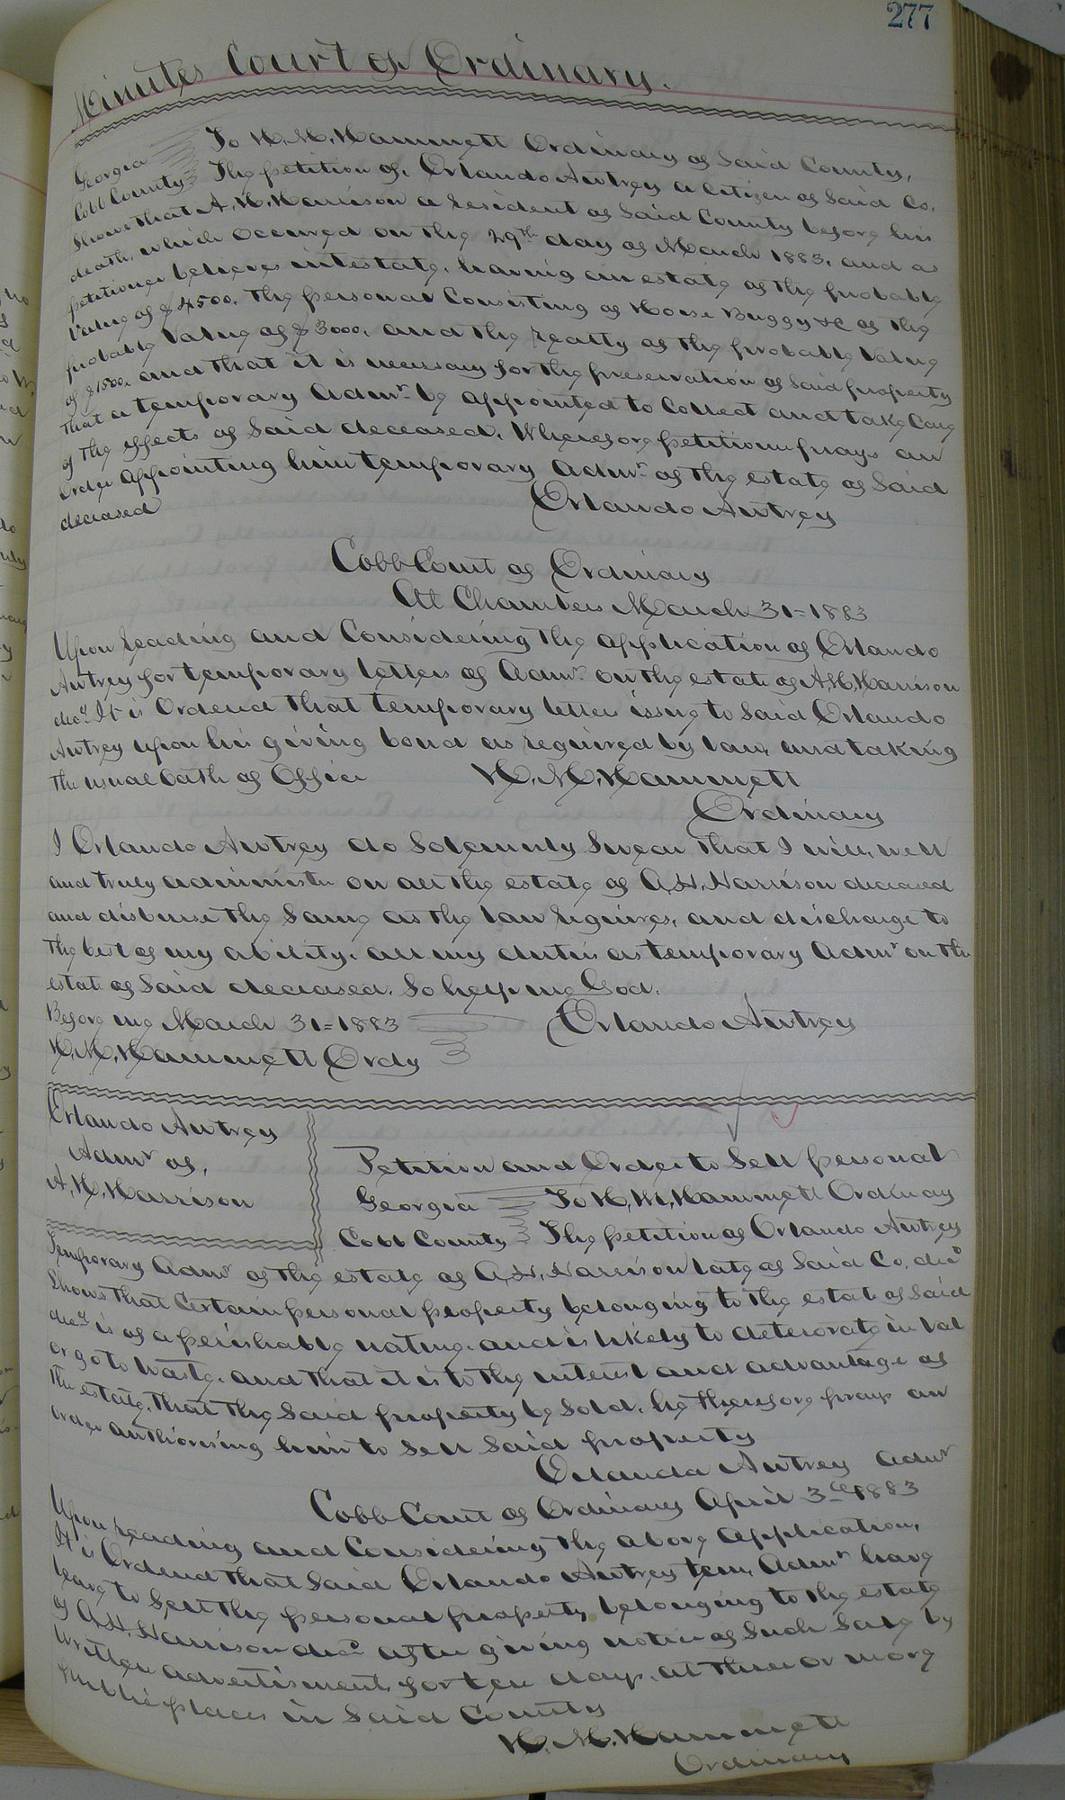 277
Minutes Court of Ordinary.
Georgia To H. M. Hammett Ordinary of Said County,
Cobb County The petition of, Orlando Awtrey a Citizen of Said Co.
Shows that A. H. Harrison a resident of Said County before his
death, which occured on the 29th day of March 1883, and as
petitioner believes intestate, having an estate of the probable
Value of $4500. The personal Consisting of Horse Buggy &c of the
probable Value of $3000, and the realty of the probable Value
of $1500. and that it is necessary for the preservation of Said property
that a temporary Admr. be appointed to Collect and take Care
of the effects of Said deceased. Wherefore petitioner prays an
Order Appointing him temporary Admr. of the estate of Said
deceased Orlando Awtrey
Cobb Court of Ordinary
At Chambers March 31=1883
Upon reading and Considering the application of Orlando
Awtrey for temporary letters of Admr. on the estate of A. H. Harrison
decd. It is Ordered that temporary letters issue to Said Orlando
Awtrey upon his giving bond as required by law, and taking
the usual Oath of Office H. M. Hammett
Ordinary
I Orlando Awtrey do Solemnly Swear that I will, well
and truly administer on all the estate of A. H. Harrison deceased
and disburse the Same as the law requires, and discharge to
the best of my ability, all my duties as temporary Admr on the
estate of Said deceased. So help me God.
Before me March 31=1883 Orlando Awtrey
H. M. Hammett Ordy
Orlando Awtrey
Admr of,
A. H. Harrison
Petition and Order to Sell personal
Georgia To H. M. Hammett Ordinary
Cobb County The petition of Orlando Awtrey
Temporary Admr of the estate of A. H. Harrison late of Said Co. decd
Shows that Certain personal property belonging to the estate of Said
decd is of a perishable nature and is likely to deteriorate in Val
or go to Waste. and that it is to the interest and advantage of
the estate, that the Said property be Sold. he therefore prays an
Order Authorising him to Sell Said property
Orlando Awtrey Admr
Cobb Court of Ordinary April 3rd 1883
Upon reading and Considering the above Application,
It is Ordered that Said Orlando Awtrey tem. Admr have
leave to Sell the personal property belonging to the estate
of A. H. Harrison decd after giving notice of Such Sale by
Written advertisment for ten days, at three or more
Public places in Said County
H. M. Hammett
Ordinary